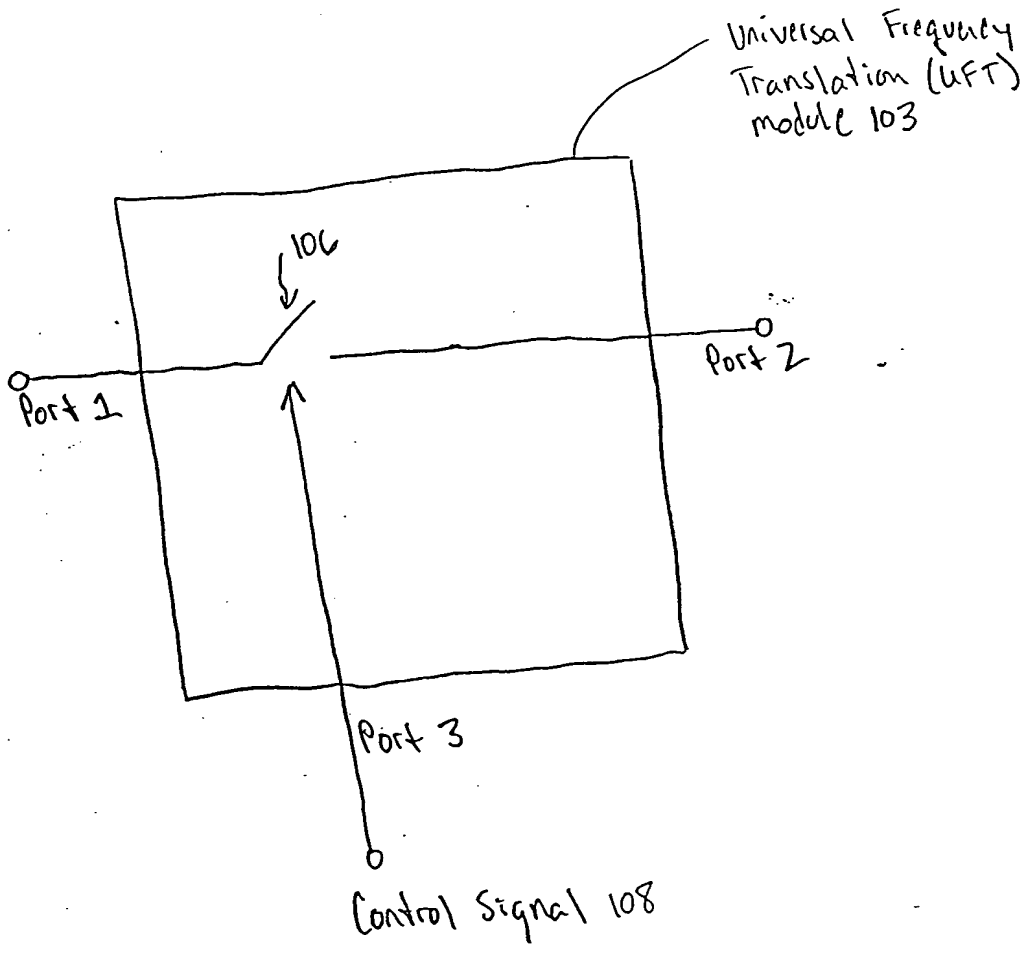 Universal Frequency
Translation (UFT)
module 103
106
Port 1
Port 2
Port 3
Control Signal 108